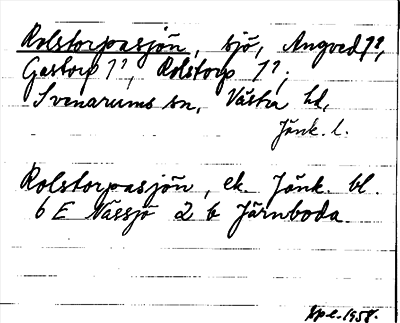 Rolstorpasjön, sjö, Angved 1²,
Gastorp 1², Rolstorp 1²;
Svenarums sn, Västra hd,
Jönk. l.
Rolstorpasjön, ek Jönk. bl.
6 E Nässjö 2 b Järnboda.
1958.